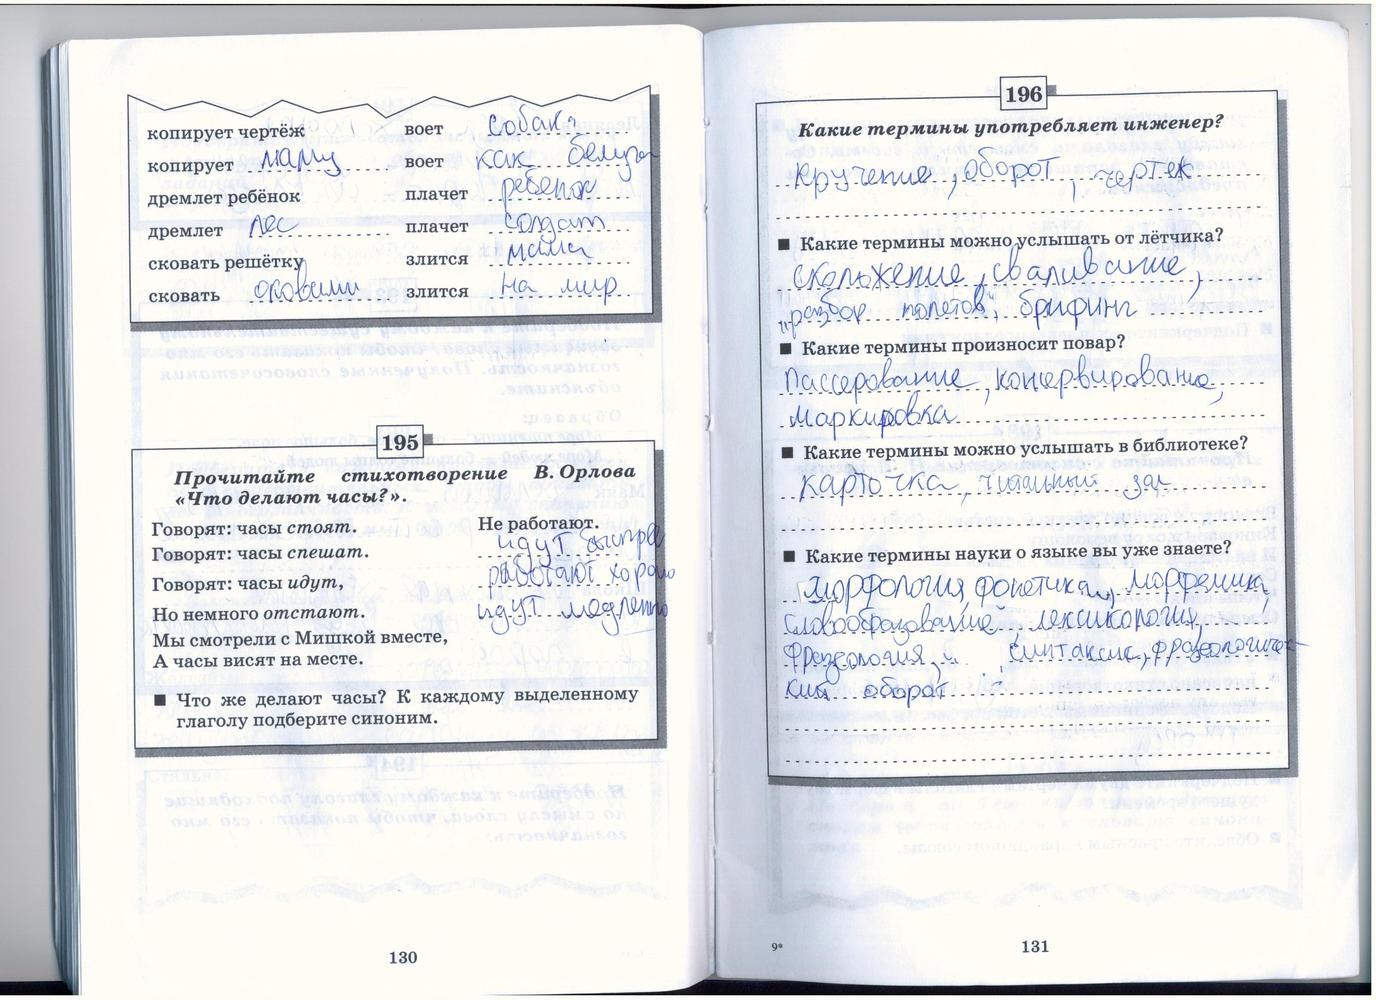 копирует чертёж воет собака
копирует маму воет как белуга
дремлет ребёнок плачет ребенок
дремлет лес плачет солдат
сковать решётку злится мама
сковать оковами злится на мир
195
Прочитайте стихотворение В. Орлова
«Что делают часы?».
Говорят: часы стоят. Не работают.
Говорят: часы спешат. идут быстрее
Говорят: часы идут, работают хорошо
Но немного отстают. идут медленно
Мы смотрели с Мишкой вместе,
А часы висят на месте.
■ Что же делают часы? К каждому выделенному
глаголу подберите синоним.
130
196
Какие термины употребляет инженер?
кручение, оборот, чертеж
■ Какие термины можно услышать от лётчика?
скольжение, сваливание,
"разбор полетов", брифинг
■ Какие термины произносит повар?
Пассерование, консервирование,
маркировка
■ Какие термины можно услышать в библиотеке?
карточка, читальный зал
■ Какие термины науки о языке вы уже знаете?
морфология, фонетика, морфемика,
словообразование, лексикология,
фразеология, синтаксис, фразеологичес-
кий оборот
9*
131